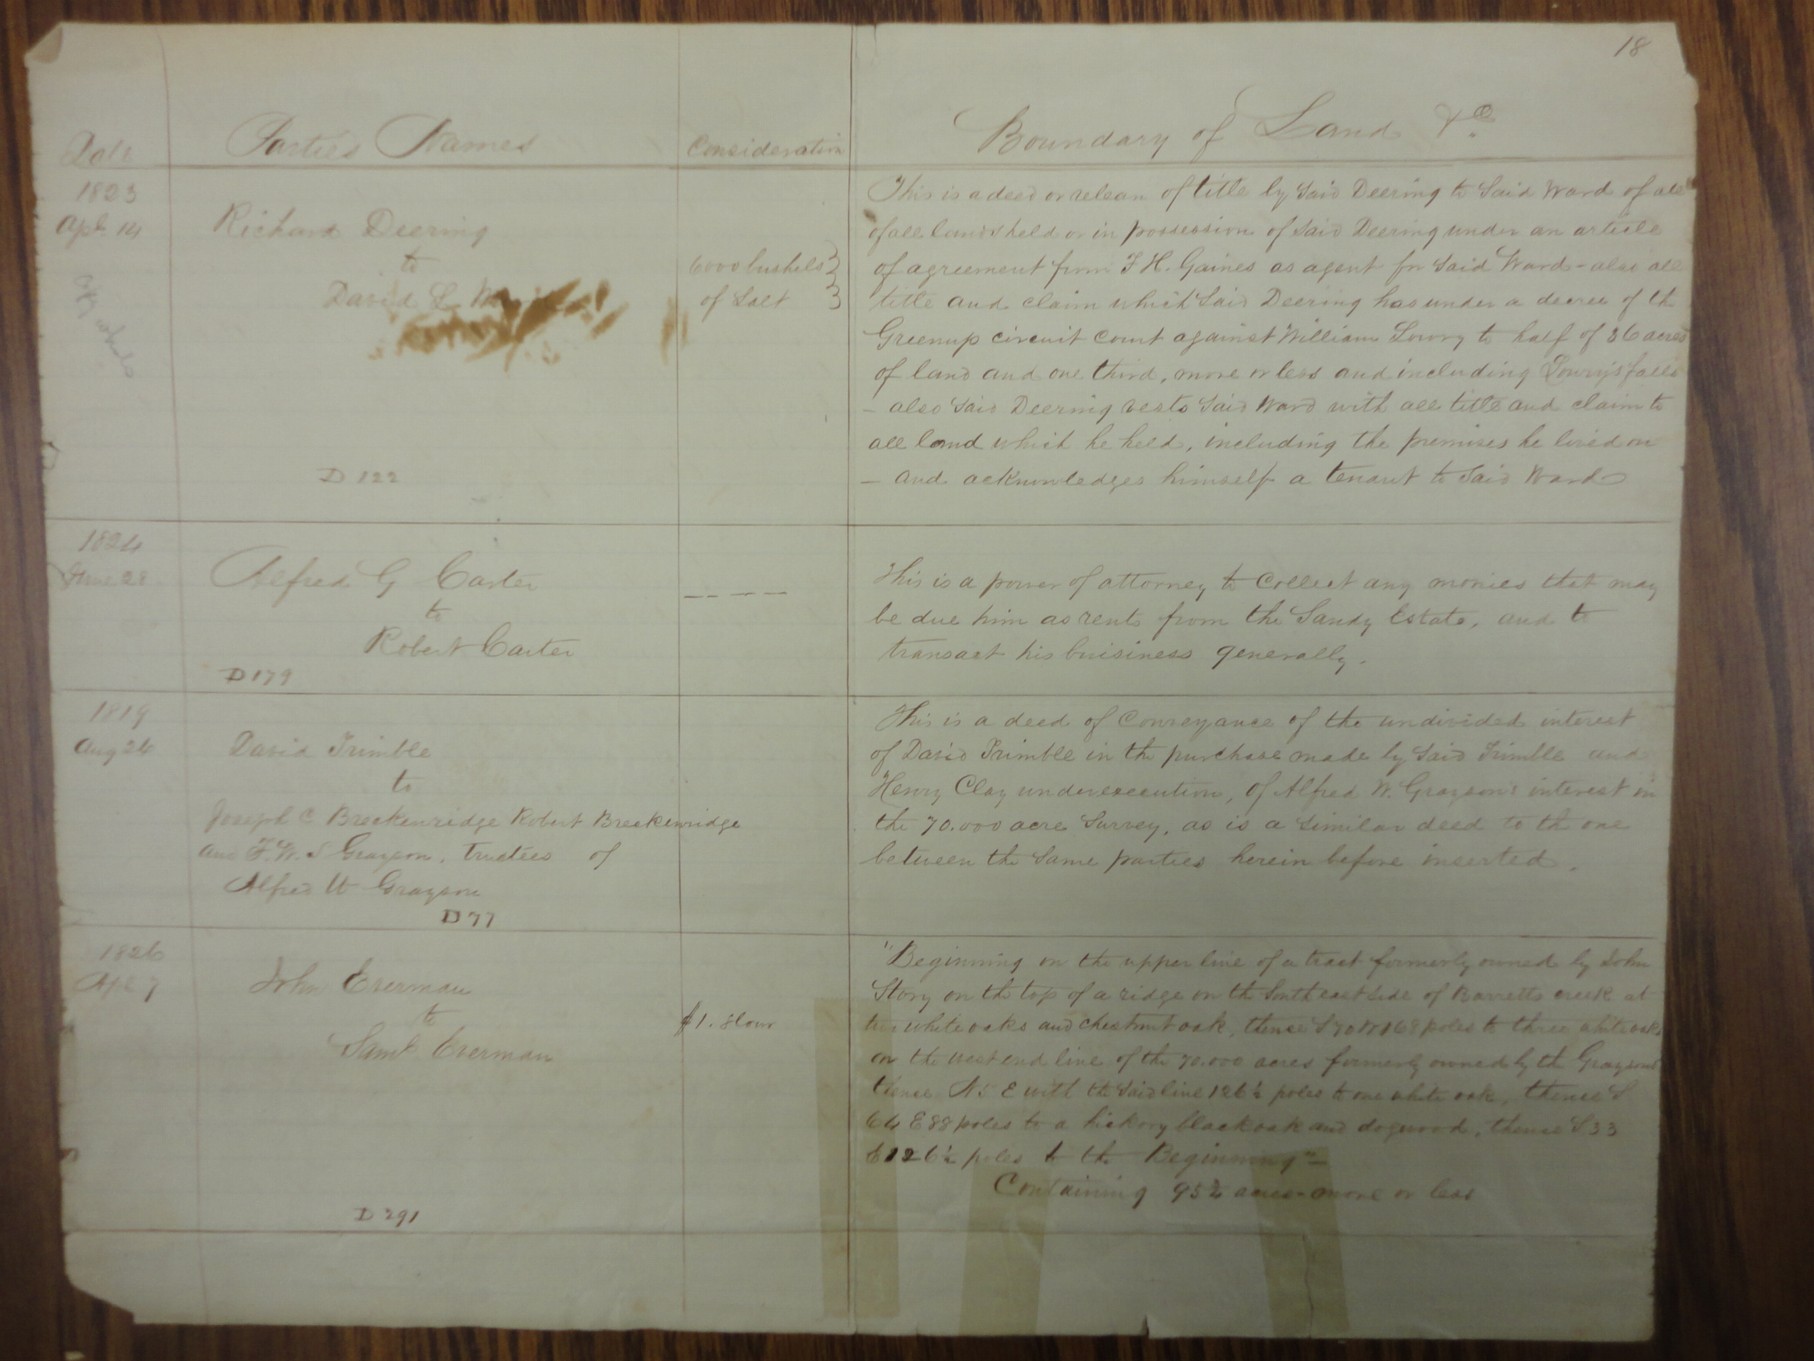 18
Date
Parties Names
Consideration
Boundary of Land &c.
1823
Apl. 14
Richard Deering
to
David L
6000 bushels
of Salt
D 122
This is a deed or release of title by Said Deering to Said Ward of all
of all lands held or in possession of Said Deering under an article
of agreement from F H. Gaines as agent for Said Ward - also all
title and claim which Said Deering has under a decree of the
Greenup circuit court against William Lowry to half of 36 acres
of land and one third, more or less and including Lowry's falls
- also Said Deering vests Said Ward with all title and claim to
all land which he held, including the premises he lived on
- and acknowledges himself a tenant to Said Ward
1824
June 28
Alfred G Carter
to
Robert Carter
D 179
— — — —
This is a power of attorney to Collect any monies that may
be due him as rents from the Sandy Estate, and to
transact his buisiness generally.
1819
Aug 26
David Trimble
to
Joseph C Breckenridge Robert Breckenridge
and F. W. S Grayson, trustees of
Alfred W Grayson
D 77
This is a deed of Conveyance of the undivided interest
of David Trimble in the purchase made by Said Trimble and
Henry Clay under execution, of Alfred W. Grayson's interest in
the 70.000 acre Survey, as is a Similar deed to the one
between the Same parties herein before inserted.
1826
Apl 7
John Everman
to
Saml Everman
$1.
D 291
"Beginning on the upper line of a tract formerly owned by John
Story on the top of a ridge on the South east side of Barretts creek at
two white oaks and chestnut oak, thence S 70 W 168 poles to three white oaks
on the west end line of the 70.000 acres formerly owned by the Graysons
thence N 5 E with the Said line 126½ poles to one white oak, thence S
64 E 88 poles to a hickory black oak and dogwood, thence S 33
E 126½ poles to the Beginning"—
Containing 95½ acres - more or less